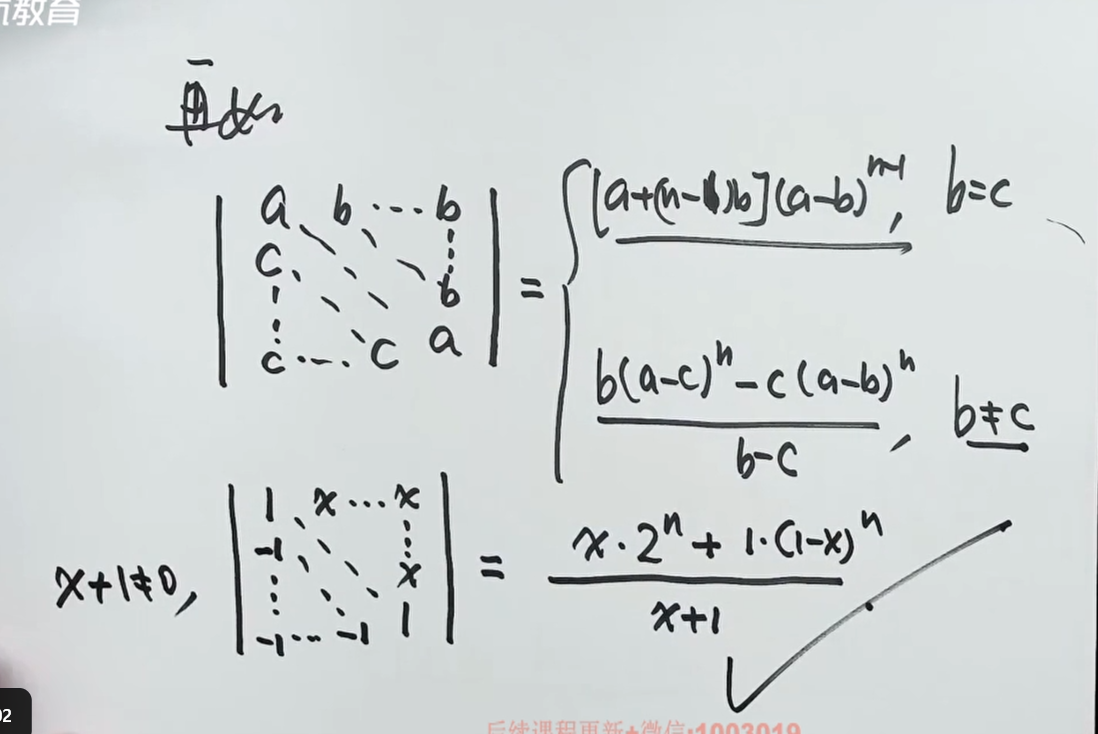 航教育
再如
| a b ⋯ b |
| c ⋱ ⋱ ⋮ |
| ⋮ ⋱ ⋱ b |
| c ⋯ c a |
= { [a+(n-1)b](a-b)^{n-1}, b=c
b(a-c)^n - c(a-b)^n / b-c , b≠c
x+1≠0,
| 1 x ⋯ x |
| -1 ⋱ ⋱ ⋮ |
| ⋮ ⋱ ⋱ x |
| -1 ⋯ -1 1 |
= x·2^n + 1·(1-x)^n / x+1
02
后续课程更新+微信:1003019